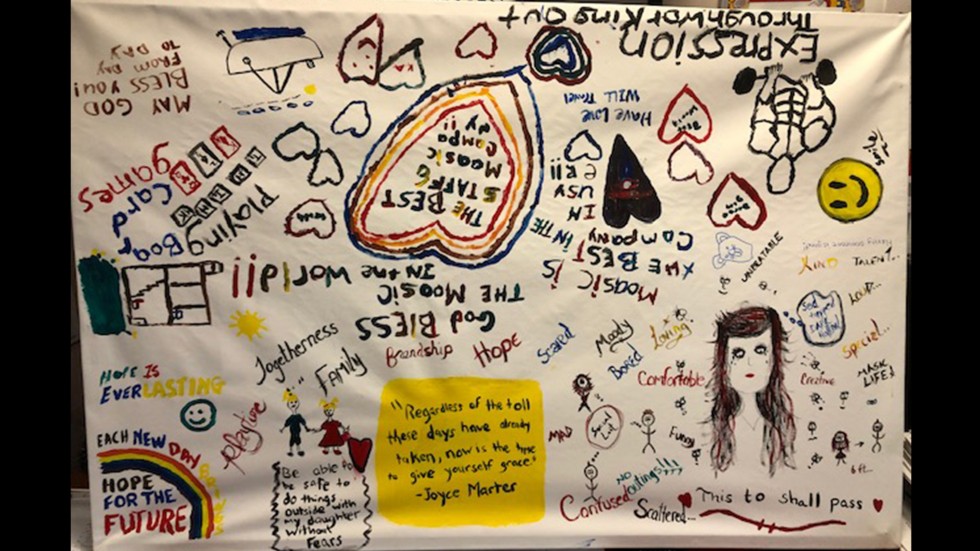 EXPRESSION
Through working out
MAY GOD
BLESS YOU!
FROM DAY
TO DAY
THE BEST
STAFF
MOOSIC
Have Love
WILL Travel
Smile
Playing
Card
games
MOOSIC IS
THE BEST
Company
IN THE
USA
GOD BLESS
THE MOOSIC
IN the World!!
UNBEATABLE
KIND
TALENT..
LOUD...
Special...
MASK
LIFE!
Creative
6ft
Togetherness
FAMILY
friendship
HOPE
Scared
Moody
Bored
Loving
Comfortable
HOPE IS
EVERLASTING
Positive
EACH NEW DAY
HOPE
FOR THE
FUTURE
"Regardless of the toll
these days have already
taken, now is the time
to give yourself grace"
-Joyce Marter
Be able to
be safe to
do things
outside with
my daughter
without
fears
MAD
Funny
NO
outings???
Confused
Scattered...
This to shall pass